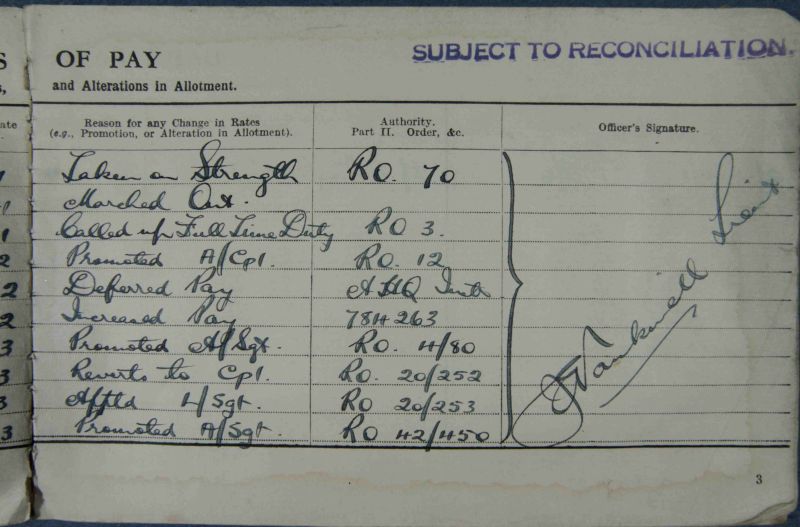 S OF PAY SUBJECT TO RECONCILIATION.
and Alterations in Allotment.
ate Reason for any Change in Rates Authority. Officer's Signature.
(e.g., Promotion, or Alteration in Allotment). Part II. Order, &c.
Taken on Strength RO. 70
1 Marched Out.
1 Called up Full Time Duty RO 3.
2 Promoted A/Cpl. RO. 12
2 Deferred Pay AHQ Instr
2 Increased Pay 784263
3 Promoted A/Sgt. RO. 4/80
3 Reverts to Cpl. RO. 20/252
3 Appt'd L/Sgt. RO 20/253
3 Promoted A/Sgt. RO 42/450
Lieut
3